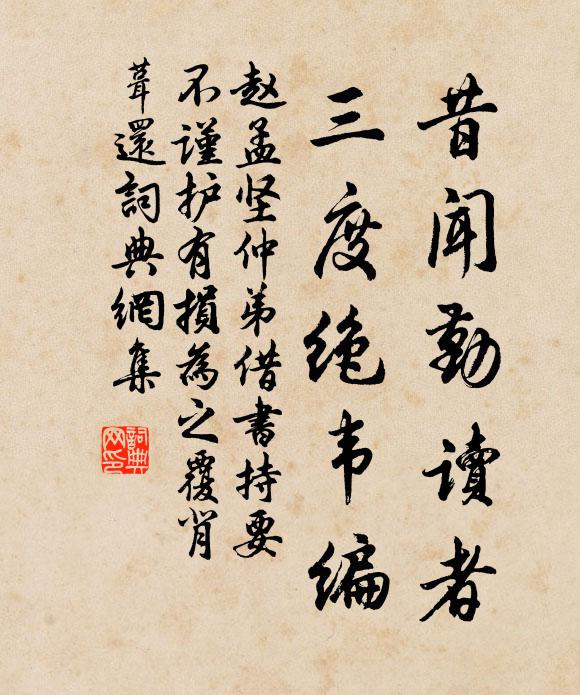 昔闻勤读者
三度绝韦编
赵孟坚仲弟借書持要
不谨护有損為之覆肖
葺還詞典網集
詞典
网印